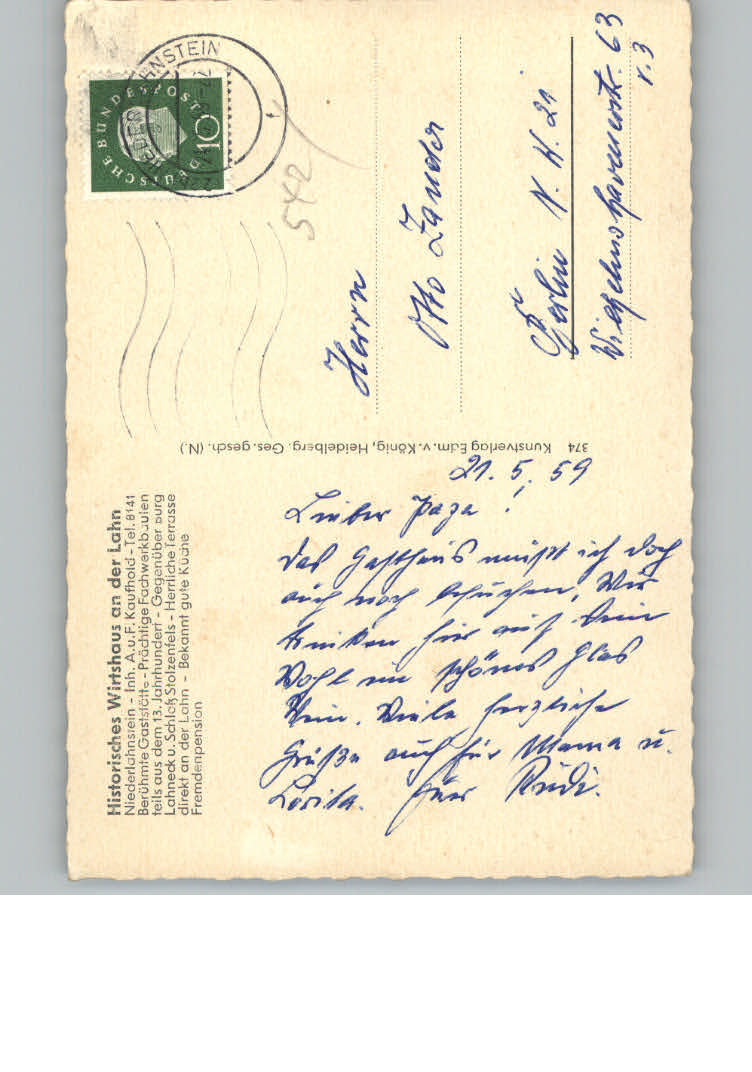 Historisches Wirtshaus an der Lahn
Niederlahnstein - Inh. A. u. F. Kaufhold - Tel. 8141
Berühmte Gaststätte - Prächtige Fachwerkbauten
teils aus dem 13. Jahrhundert - Gegenüber Burg
Lahneck u. Schloß Stolzenfels - Herrliche Terrasse
direkt an der Lahn - Bekannt gute Küche
Fremdenpension
21. 5. 59
Lieber Papa!
Das Gasthaus mußt ich doch
auch noch besuchen. Wir
trinken hier auf Dein
Wohl ein schönes Glas
Wein. Viele herzliche
Grüße auch für Mama u.
Euer Rudi.
374 Kunstverlag Edm. v. König, Heidelberg. Ges. gesch. (N.)
DEUTSCHE BUNDESPOST
10
542
Herrn
Otto Zander
Berlin N. W. 21
Wilhelmshavenerstr. 63
v. 3